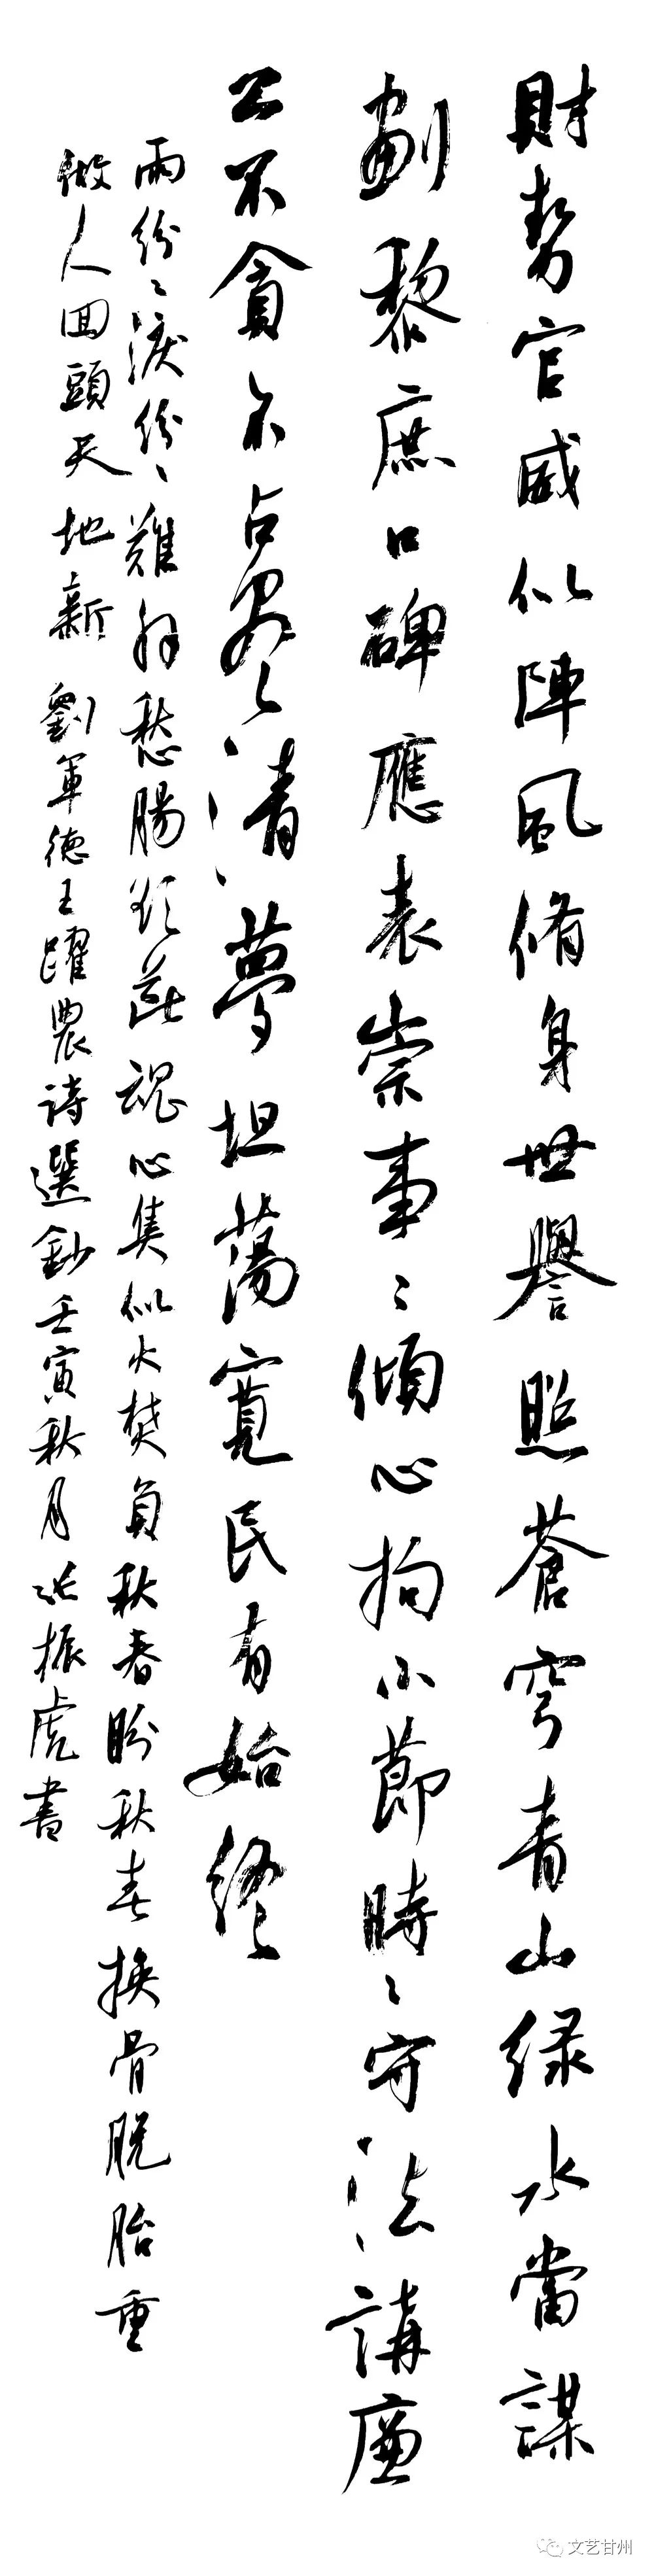 財勢官威似陣風脩身世譽照蒼穹青山緑水當謀
劃黎庶口碑應表崇事〻傾心拘小節時〻守法講廉
公不貪不占清夢坦蕩寬民有始終
雨紛〻淚紛〻難解愁腸欲斷魂心焦似火焚負秋春盼秋春換骨脫胎重
做人回頭天地新 劉軍德王躍農詩選鈔壬寅秋月張振虎書
文艺甘州